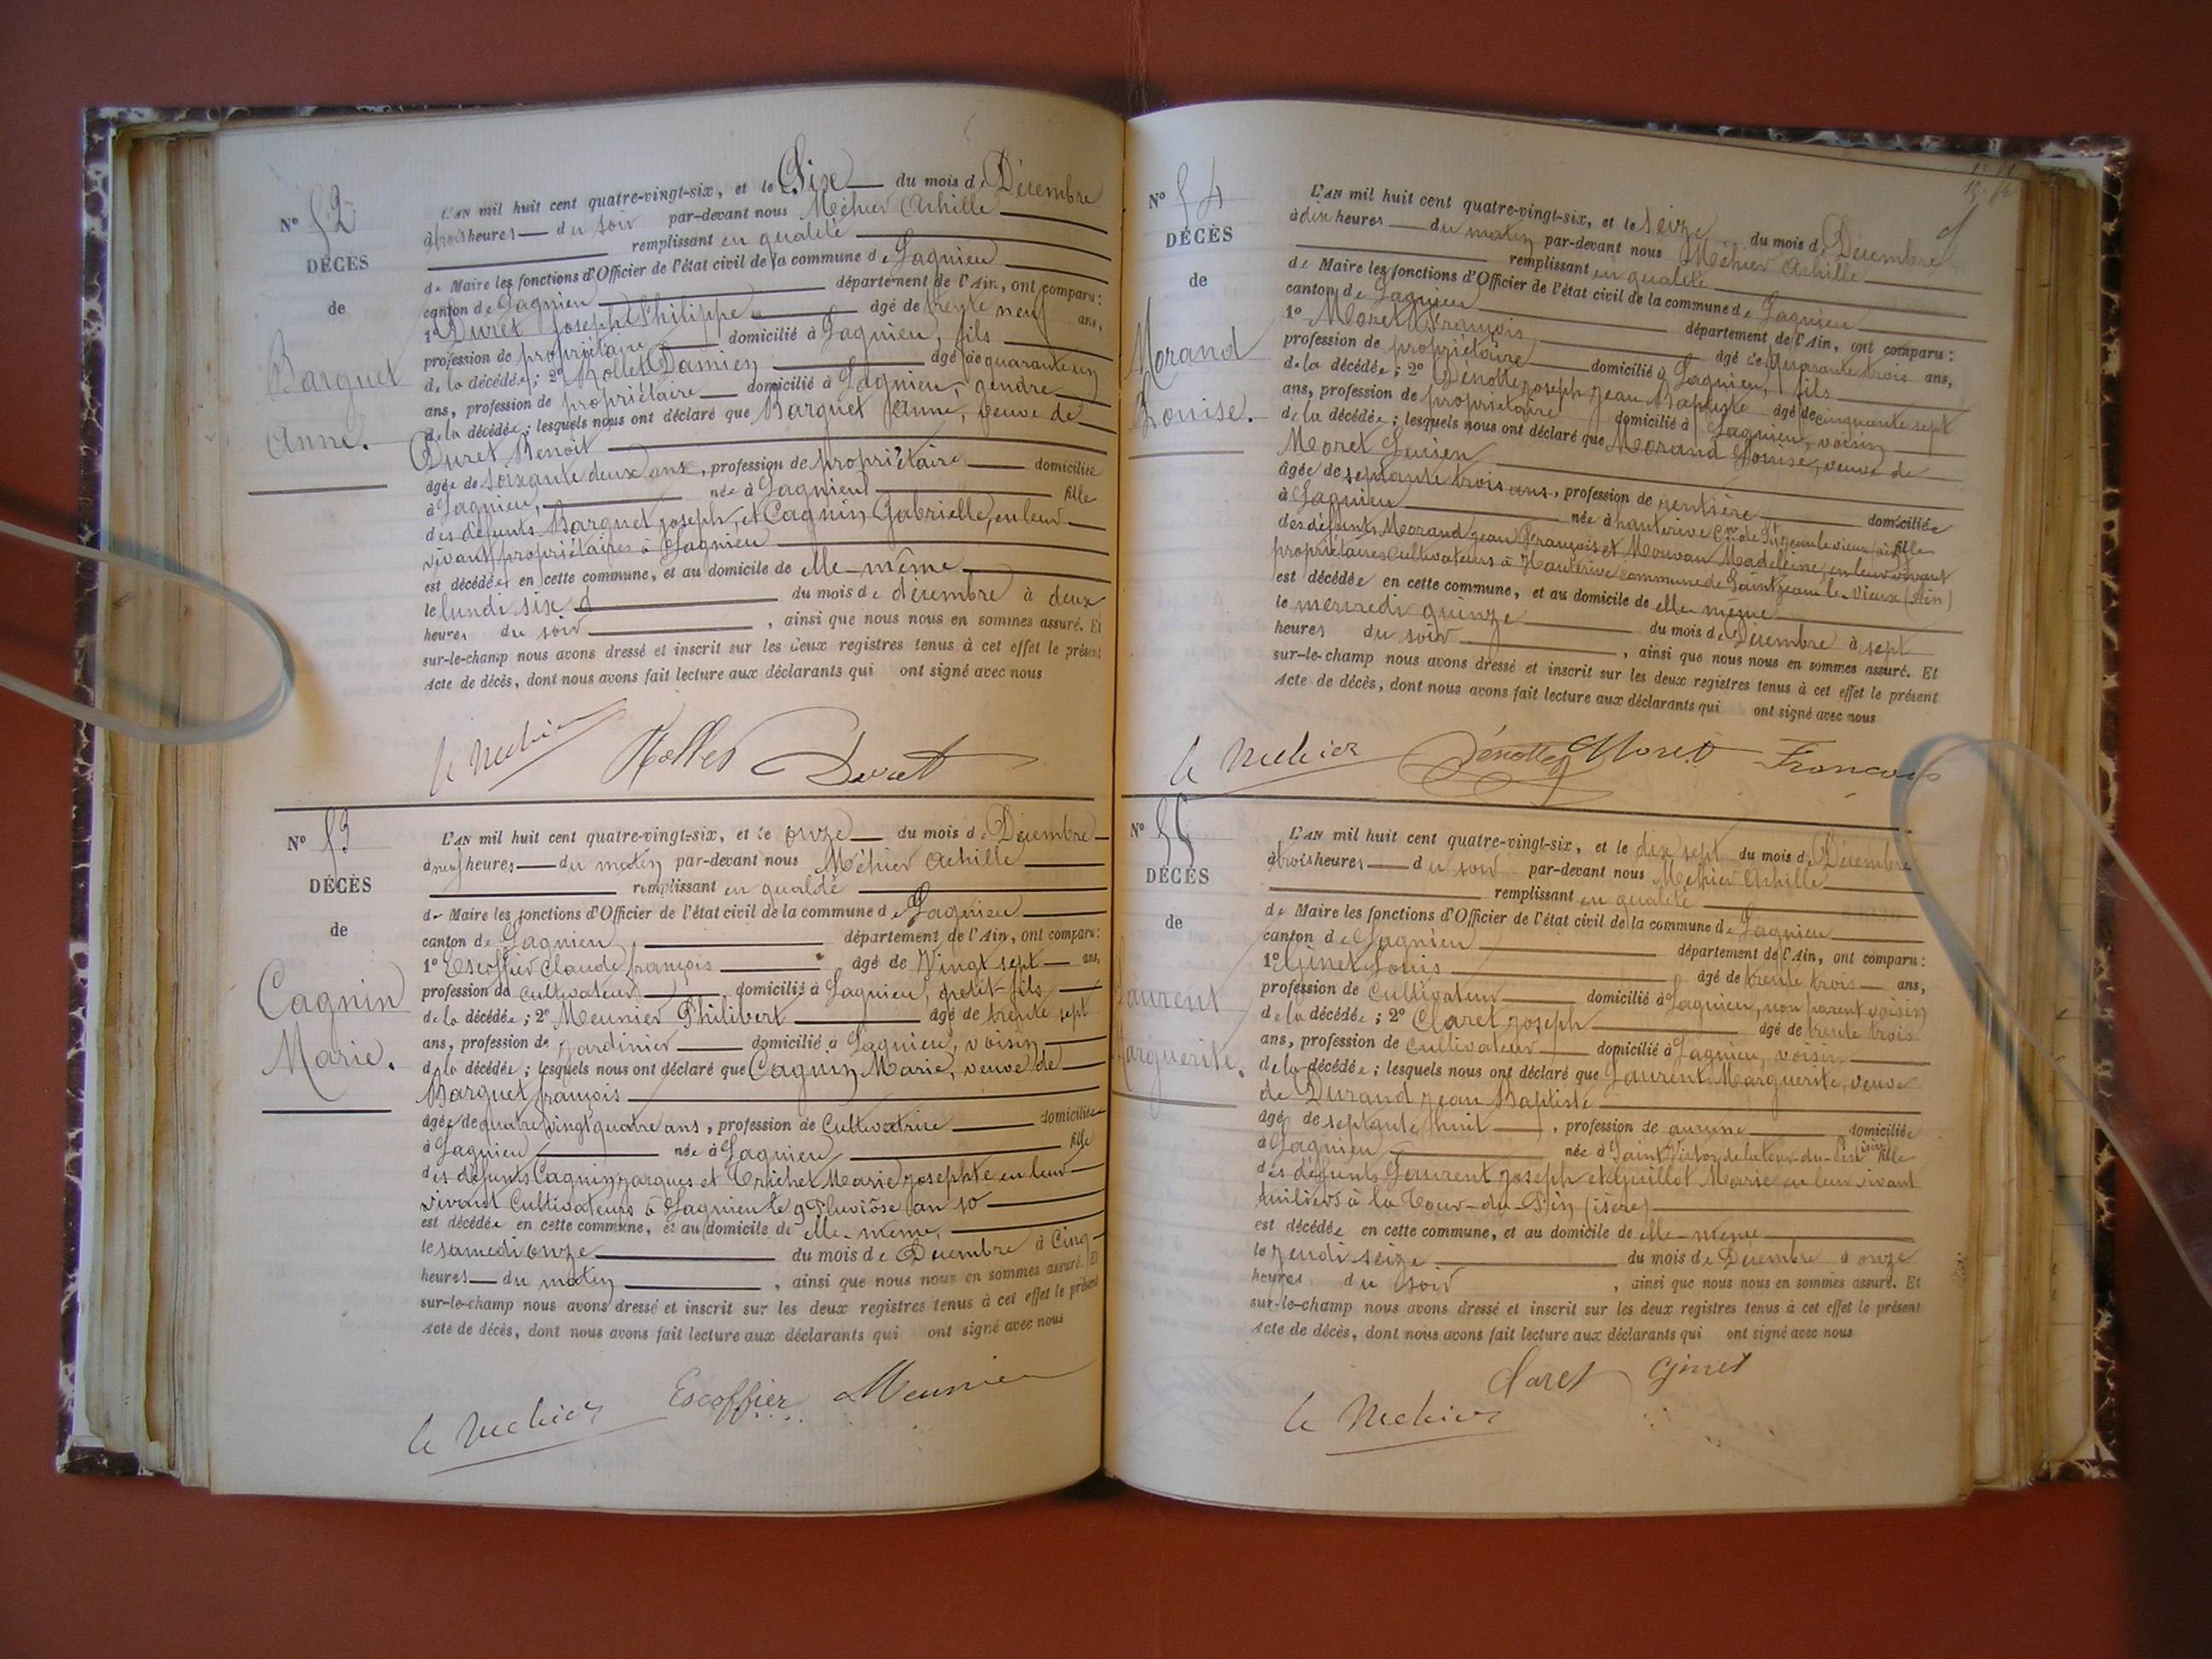 N° 52
DÉCÈS
de
Barquet
Anne.
L'AN mil huit cent quatre-vingt-six, et le Six du mois de Décembre
à trois heures du soir par-devant nous Méhier Achille
remplissant en qualité
de Maire les fonctions d'Officier de l'état civil de la commune de Lagnieu
canton de Lagnieu département de l'Ain, ont comparu:
1° Duret Joseph Philippe âgé de trente neuf ans,
profession de propriétaire domicilié à Lagnieu, fils
de la décédée; 2° Rollet Damien âgé de quarante un
ans, profession de propriétaire domicilié à Lagnieu, gendre
de la décédée; lesquels nous ont déclaré que Barquet Anne, veuve de
Duret Benoit
âgée de soixante deux ans, profession de propriétaire domiciliée
à Lagnieu, née à Lagnieu fille
des défunts Barquet Joseph, et Cagnin Gabrielle, en leur
vivant propriétaires à Lagnieu
est décédée en cette commune, et au domicile de elle-même
le lundi six du mois de décembre à deux
heures du soir, ainsi que nous nous en sommes assuré. Et
sur-le-champ nous avons dressé et inscrit sur les deux registres tenus à cet effet le présent
Acte de décès, dont nous avons fait lecture aux déclarants qui ont signé avec nous
le Mehier Rollet Duret
N° 53
DÉCÈS
de
Cagnin
Marie.
L'AN mil huit cent quatre-vingt-six, et le onze du mois de Décembre
à neuf heures du matin par-devant nous Méhier Achille
remplissant en qualité
de Maire les fonctions d'Officier de l'état civil de la commune de Lagnieu
canton de Lagnieu, département de l'Ain, ont comparu:
1° Escoffier Claude françois âgé de Vingt sept ans,
profession de cultivateur domicilié à Lagnieu, petit-fils
de la décédée; 2° Meunier Philibert âgé de trente sept
ans, profession de jardinier domicilié à Lagnieu, voisin
de la décédée; lesquels nous ont déclaré que Cagnin Marie, veuve de
Barquet françois
âgée de quatre vingt quatre ans, profession de Cultivatrice domiciliée
à Lagnieu née à Lagnieu fille
des défunts Cagnin jacques et Trichet Marie josephte en leur
vivant Cultivateurs à Lagnieu le 9 Pluviôse an 10
est décédée en cette commune, et au domicile de elle-même,
le samedi onze du mois de Décembre à Cinq
heures du matin, ainsi que nous nous en sommes assuré. Et
sur-le-champ nous avons dressé et inscrit sur les deux registres tenus à cet effet le présent
Acte de décès, dont nous avons fait lecture aux déclarants qui ont signé avec nous
le Mehier Escoffier Meunier
N° 54
DÉCÈS
de
Morand
Louise.
L'AN mil huit cent quatre-vingt-six, et le seize du mois de Décembre
à dix heures du matin par-devant nous Méhier Achille
remplissant en qualité
de Maire les fonctions d'Officier de l'état civil de la commune de Lagnieu
canton de Lagnieu département de l'Ain, ont comparu:
1° Moret François âgé de quarante trois ans,
profession de propriétaire domicilié à Lagnieu, fils
de la décédée; 2° Dénotte joseph jean Baptiste âgé de cinquante sept
ans, profession de propriétaire domicilié à Lagnieu, voisin
de la décédée; lesquels nous ont déclaré que Morand Louise, veuve de
Moret Lucien
âgée de septante trois ans, profession de rentière domiciliée
à Lagnieu née à hauterive Cne de St jean le vieux (ain) fille
des défunts Morand jean François et Mouvan Madeleine, en leur vivant
propriétaires cultivateurs à Hauterive commune de Saint jean le Vieux (Ain)
est décédée en cette commune, et au domicile de elle-même
le mercredi quinze du mois de Décembre à sept
heures du soir, ainsi que nous nous en sommes assuré. Et
sur-le-champ nous avons dressé et inscrit sur les deux registres tenus à cet effet le présent
Acte de décès, dont nous avons fait lecture aux déclarants qui ont signé avec nous
le Mehier Dénotte Moret Francois
N° 55
DÉCÈS
de
Laurent
Marguerite.
L'AN mil huit cent quatre-vingt-six, et le dix sept du mois de Décembre
à trois heures du soir par-devant nous Méhier Achille
remplissant en qualité
de Maire les fonctions d'Officier de l'état civil de la commune de Lagnieu
canton de Lagnieu département de l'Ain, ont comparu:
1° Ginet Louis âgé de trente trois ans,
profession de Cultivateur domicilié à Lagnieu, non parent voisin
de la décédée; 2° Claret joseph âgé de trente trois
ans, profession de Cultivateur domicilié à Lagnieu, voisin
de la décédée; lesquels nous ont déclaré que Laurent Marguerite, veuve
de Durand jean Baptiste
âgé de septante huit, profession de aucune domiciliée
à Lagnieu née à Saint Victor de la tour-du-Pin (isère) fille
des défunts Laurent joseph et Guillot Marie en leur vivant
tuiliers à la Tour-du-Pin (isère)
est décédée en cette commune, et au domicile de elle-même
le jeudi seize du mois de Décembre à onze
heures du soir, ainsi que nous nous en sommes assuré. Et
sur-le-champ nous avons dressé et inscrit sur les deux registres tenus à cet effet le présent
Acte de décès, dont nous avons fait lecture aux déclarants qui ont signé avec nous
Claret Ginet
le Mehier